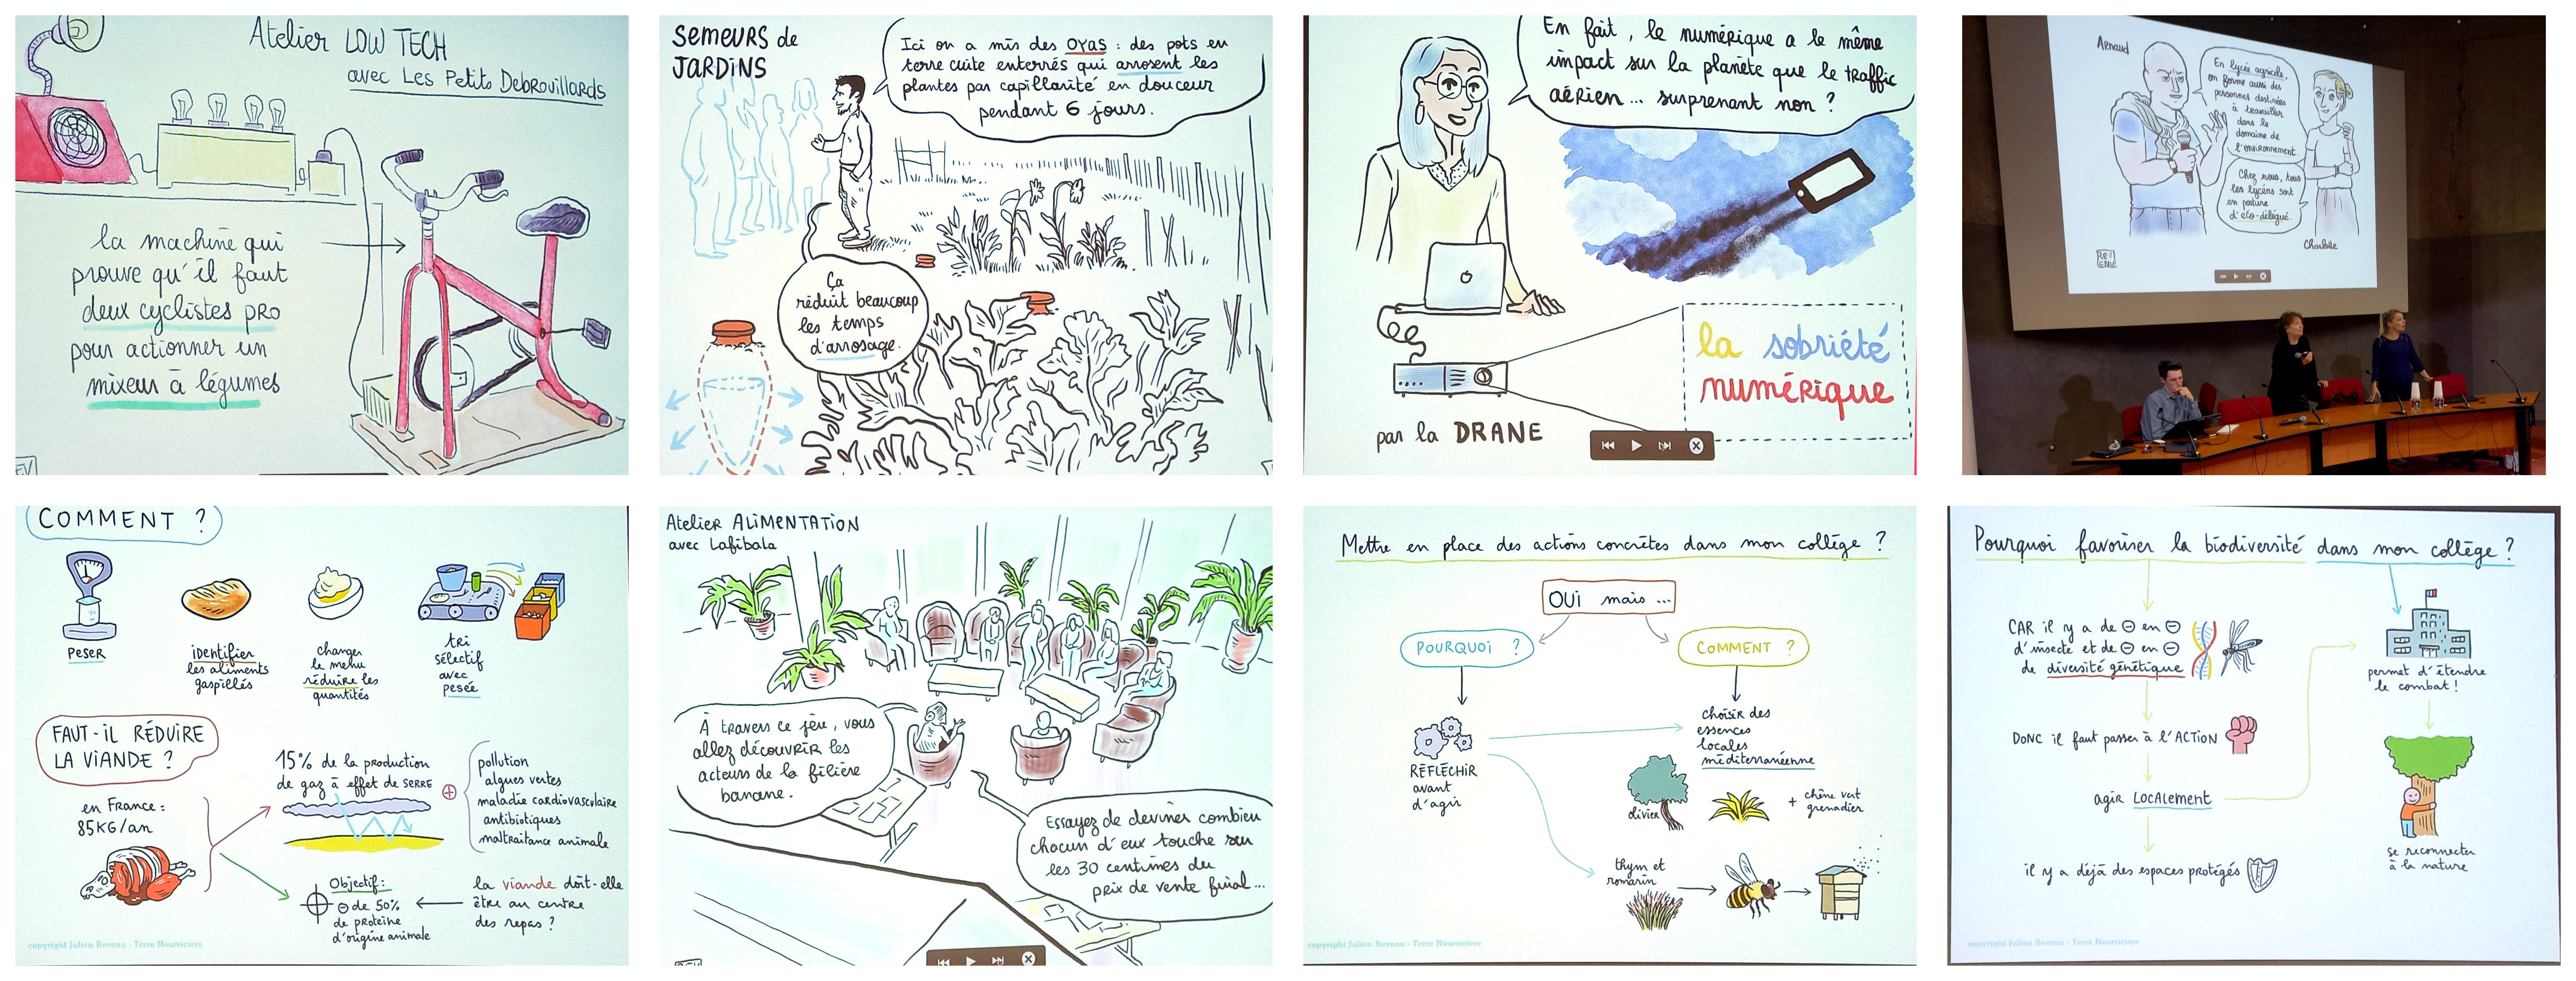 Atelier LOW TECH
avec Les Petits Debrouillards
la machine qui
prouve qu'il faut
deux cyclistes pro
pour actionner un
mixeur à légumes
SEMEURS de
JARDINS
Ici on a mis des OYAS : des pots en
terre cuite enterrés qui arrosent les
plantes par capillarité en douceur
pendant 6 jours.
Ça
réduit beaucoup
les temps
d'arrosage.
En fait, le numérique a le même
impact sur la planète que le traffic
aérien... surprenant non ?
la sobriété
numérique
par la DRANE
Arnaud
En lycée agricole,
on forme aussi des
personnes destinées
à travailler
dans le
domaine de
l'environnement
Chez nous, tous
les lycéens sont
en posture
d'éco-délégué.
Charlotte
REVENU
COMMENT ?
PESER
identifier
les aliments
gaspillés
changer
le menu
réduire les
quantités
tri
sélectif
avec
pesée
FAUT-IL RÉDUIRE
LA VIANDE ?
en France :
85KG/an
15% de la production
de gaz à effet de SERRE
pollution
algues vertes
maladie cardiovasculaire
antibiotiques
maltraitance animale
Objectif :
⊖ de 50%
de protéine
d'origine animale
la viande doit-elle
être au centre
des repas ?
copyright Julien Revenu - Terre Nourricière
Atelier ALIMENTATION
avec Lafibala
À travers ce jeu, vous
allez découvrir les
acteurs de la filière
banane.
Essayez de deviner combien
chacun d'eux touche sur
les 30 centimes du
prix de vente final...
Mettre en place des actions concrètes dans mon collège ?
OUI mais...
POURQUOI ?
COMMENT ?
RÉFLÉCHIR
avant
d'agir
choisir des
essences
locales
méditerranéenne
olivier
+ chêne vert
grenadier
thym et
romarin
copyright Julien Revenu - Terre Nourricière
Pourquoi favoriser la biodiversité dans mon collège ?
CAR il y a de ⊖ en ⊖
d'insecte et de ⊖ en ⊖
de diversité génétique
DONC il faut passer à l'ACTION
agir LOCALEMENT
il y a déjà des espaces protégés
permet d'étendre
le combat !
se reconnecter
à la nature
copyright Julien Revenu - Terre Nourricière